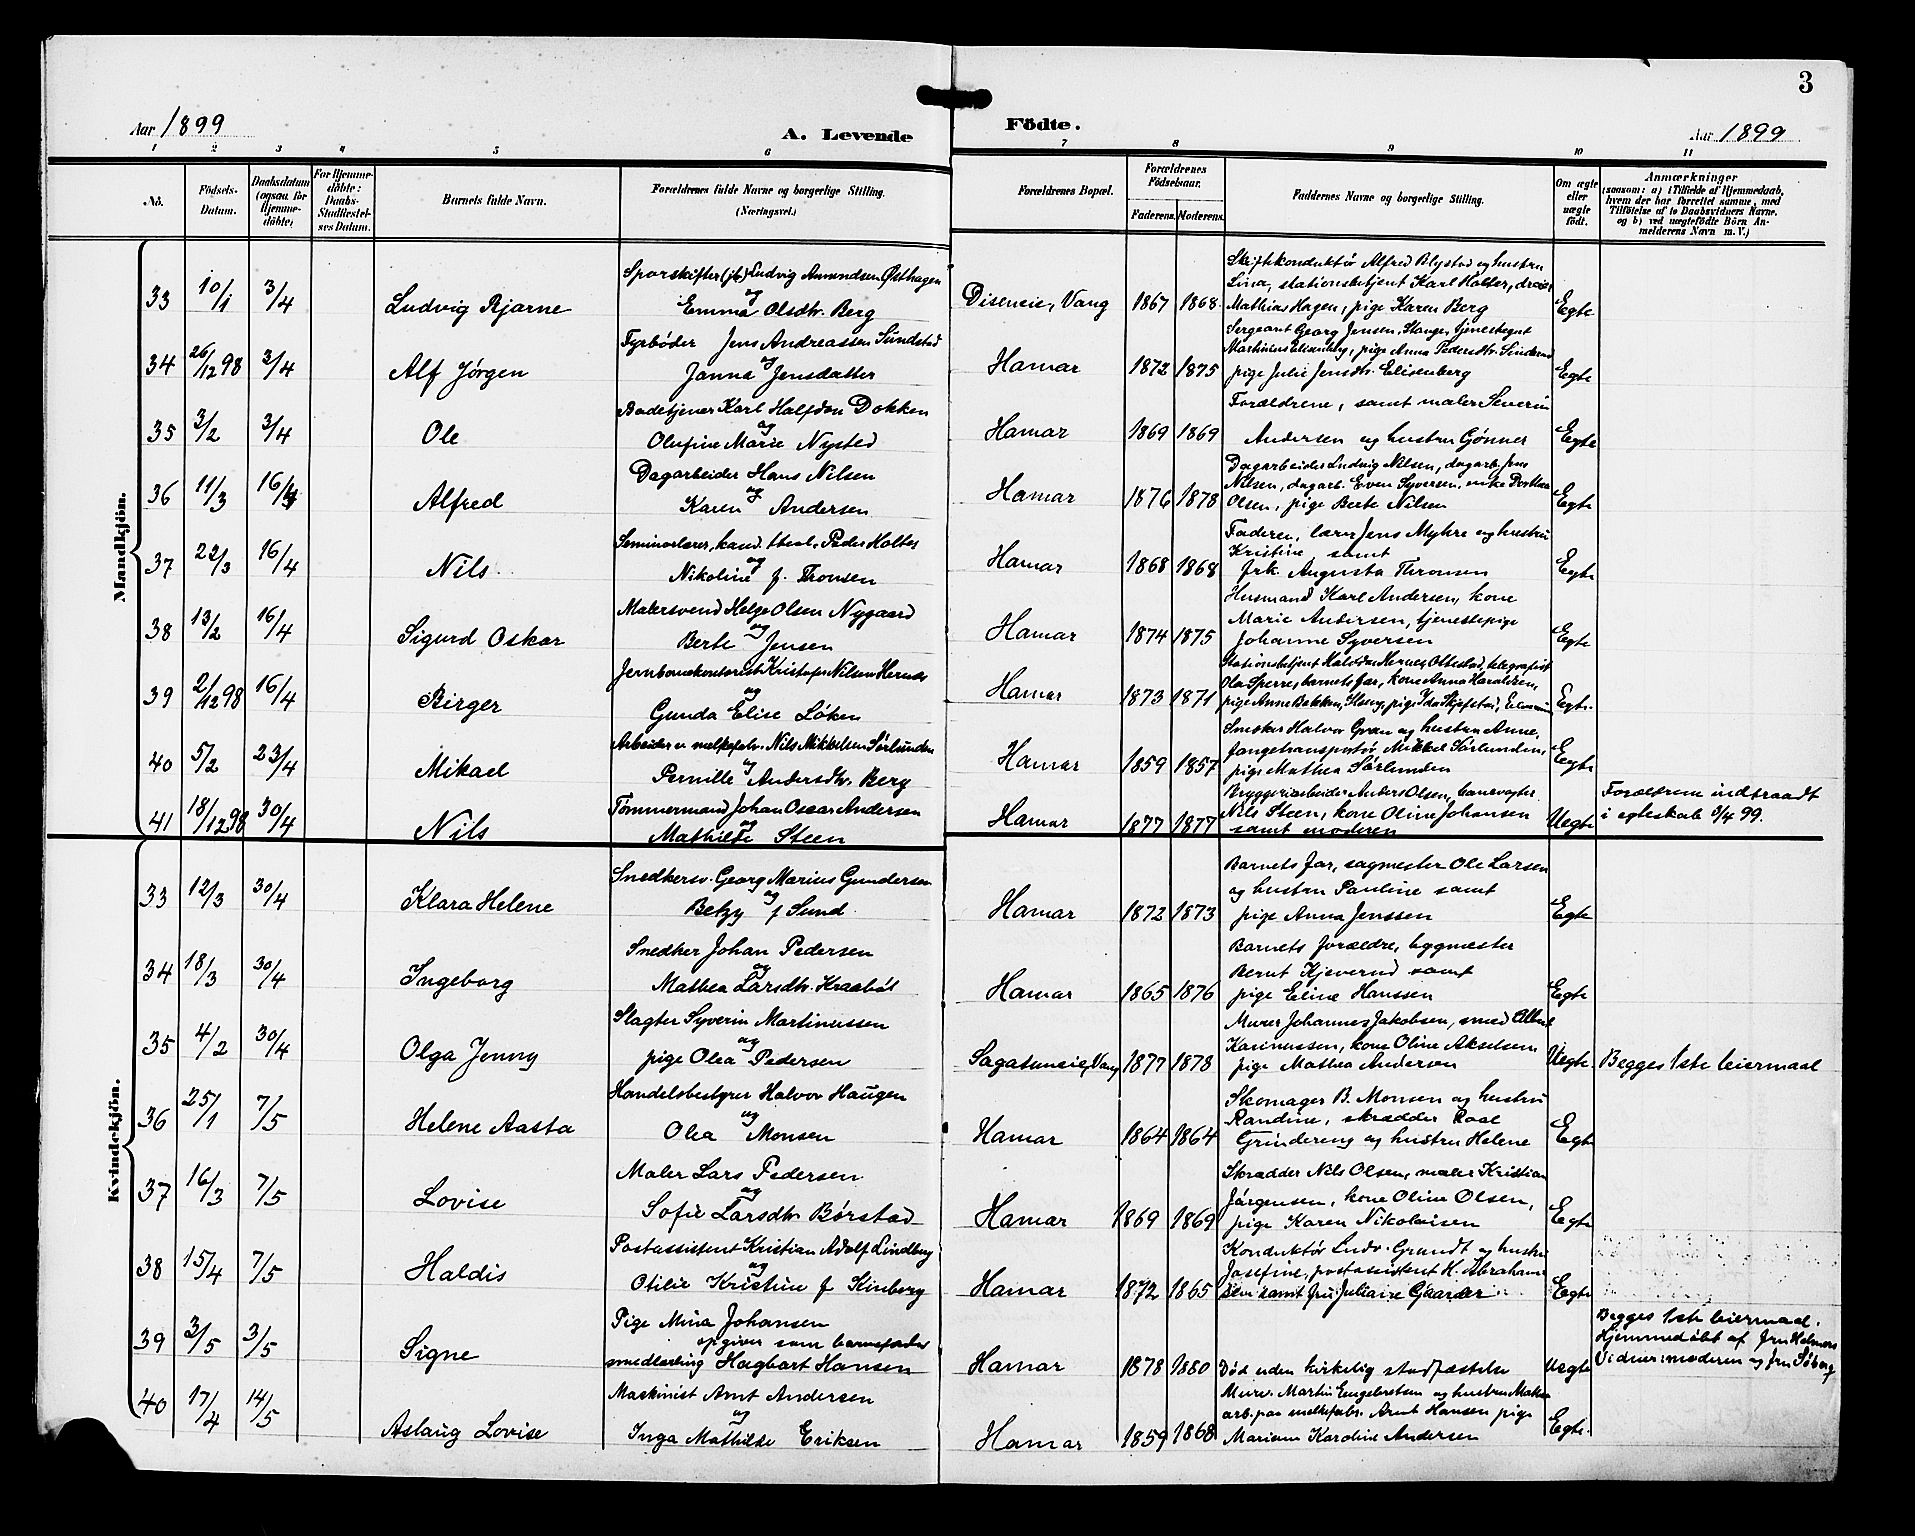 3
Aar 1899
A. Levende
Födte.
Aar 1899
1 2 3 4 5 6 7 8 9 10 11
No.
Födsels-Datum.
Daabsdatum (ogsaa for Hjemmedöbte)
For Hjemmedöbte: Daabs-Stadfæstelses Datum.
Barnets fulde Navn.
Forældrenes fulde Navne og borgerlige Stilling.
(Næringsvei.)
Forældrenes Bopæl.
Forældrenes Födselsaar.
Faderens. Moderens.
Faddernes Navne og borgerlige Stilling.
Om ægte eller uægte födt.
Anmærkninger
(saasom: a) i Tilfælde af Hjemmedaab,
hvem der har forrettet samme, med
Tilföielse af to Daabsvidners Navne.
og b) ved uægtefödte Börn An-
melderens Navn m. V.)
Mandkjön.
33 10/1 3/4 Ludvig Bjarne
Sporskifter (jb) Ludvig Amundsen Østhagen
og
Emma Olsdtr. Berg
Diseneie, Vang 1867 1868
Skiftekonduktør Alfred Blystad og hustru
Lina, stationsbetjent Karl Holter,
Mathias Hagen, pige Karen Berg
Egte
34 26/12 98 3/4 Alf Jørgen
Fyrbøder Jens Andreassen Sundstad
og
Janna Jensdatter
Hamar 1872 1875
Sergeant Georg Jensen, Stange, tjenestegut
Martinius Elisenberg, pige Anna Pedersdtr.
pige Julie Jensdtr. Elisenberg
Egte
35 3/2 3/4 Ole
Badetjener Karl Halfdan Dokken
og
Olufine Marie Nysted
Hamar 1869 1869
Forældrene, samt maler Severin
Andersen og hustru Gønner
Egte
36 11/3 16/4 Alfred
Dagarbeider Hans Nilsen
og
Karen Andersen
Hamar 1876 1878
Dagarbeider Ludvig Nilsen, dagarb. Jens
Nilsen, dagarb. Even Syversen, enke Dorthea
Olsen, pige Berte Nilsen
Egte
37 22/3 16/4 Nils
Seminarlærer, kand. theol. Peder Holtes
og
Nikoline f. Thronsen
Hamar 1868 1868
Faderen, lærer Jens Myhre og hustru
Kristine, samt
frk. Augusta Thronsen
Egte
38 13/2 16/4 Sigurd Oskar
Malersvend Helge Olsen Nygaard
og
Berte Jensen
Hamar 1874 1875
Husmand Karl Andersen, kone
Marie Andersen, tjenestepige
Johanne Syversen
Egte
39 2/12 98 16/4 Birger
Jernbanekontorist Kristofer Nilsen Hernes
og
Gunda Elise Løken
Hamar 1873 1871
Stationsbetjent Halvdan Hernes, Ottestad, telegrafist
Ola Sperre, barnets far, kone Anna Haraldsen,
pige Anne Bakken, Stange, pige Ida Skjefstad,
Egte.
40 5/2 23/4 Mikael
Arbeider v. melkefabr. Nils Mikkelsen Sørlunden
og
Pernille Andersdtr. Berg
Hamar 1859 1857
Snekker Halvor Gran og hustru Anne,
fangetransportør Mikkel Sørlunden,
pige Mathea Sørlunden
Egte
41 18/12 98 30/4 Nils
Tømmermand Johan Oscar Andersen
og
Mathilde Steen
Hamar 1877 1877
Bryggeriarbeider Anders Olsen, banevogter
Nils Steen, kone Oline Johansen
samt moderen
Uegte
Forældrene indtraadt
i egteskab 3/4 99.
Kvindekjön.
33 12/3 30/4 Klara Helene
Snedkersv. Georg Marius Gundersen
og
Betzy f Sund
Hamar 1872 1873
Barnets far, sagmester Ole Larsen
og hustru Pauline samt
pige Anna Jenssen
Egte
34 18/3 30/4 Ingeborg
Snedker Johan Pedersen
og
Mathea Larsdtr. Kraabøl
Hamar 1865 1876
Barnets forældre, bygmester
Bernt Kjeverud samt
pige Eline Hanssen
Egte
35 4/2 30/4 Olga Jenny
Slagter Syverin Martinussen
og
pige Olea Pedersen
Sagatuneie, Vang 1877 1878
Murer Johannes Jakobsen, smed Albert
Karinussen, kone Oline Akselsen
pige Mathea Andersen
Uegte
Begges 1ste leiermaal
36 25/1 7/5 Helene Aasta
Handelsbestyrer Halvor Haugen
og
Olea Monsen
Hamar 1864 1864
Skomager B. Monsen og hustru
Randine, skrædder Roal
Grindereng og hustru Helene
Egte
37 16/3 7/5 Lovise
Maler Lars Pedersen
og
Sofie Larsdtr Børstad
Hamar 1869 1869
Skrædder Nils Olsen, maler Kristian
Jørgensen, kone Oline Olsen,
pige Karen Nikolaisen
Egte
38 15/4 7/5 Haldis
Postassistent Kristian Adolf Lindberg
og
Otilie Kristine f Kinberg
Hamar 1872 1865
Konduktør Ludv. Grundt og hustru
Josefine, postassistent H. Abraham-
sen samt fru Juliane Gaarder
Egte
39 3/5 3/5 Signe
Pige Mina Johansen
opgiver som barnefader
smedlærling Hagbart Hansen
Hamar 1878 1880
Død uden kirkelig stadfæstelse
Uegte
Begges 1ste leiermaal.
Hjemmedøbt af fru Helmers
Vidner: moderen og fru Søberg
40 17/4 14/5 Aslaug Lovise
Maskinist Arnt Andersen
og
Inga Mathilde Eriksen
Hamar 1859 1868
Murer Martin Engebretsen og hustru
arb. paa melkefabr. Arnt Hansen pige
Mariane Karoline Andersen
Egte.